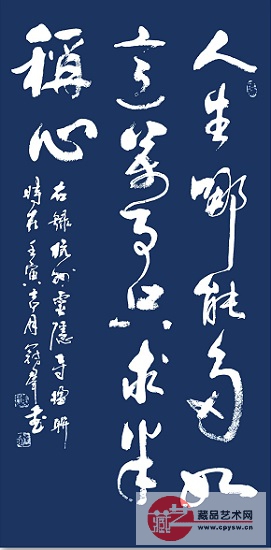 人生哪能多如
意萬事只求半
稱心
右録杭州靈隱寺楹聯
時在壬寅吉月
書
藏品艺术网
www.cpysw.cn